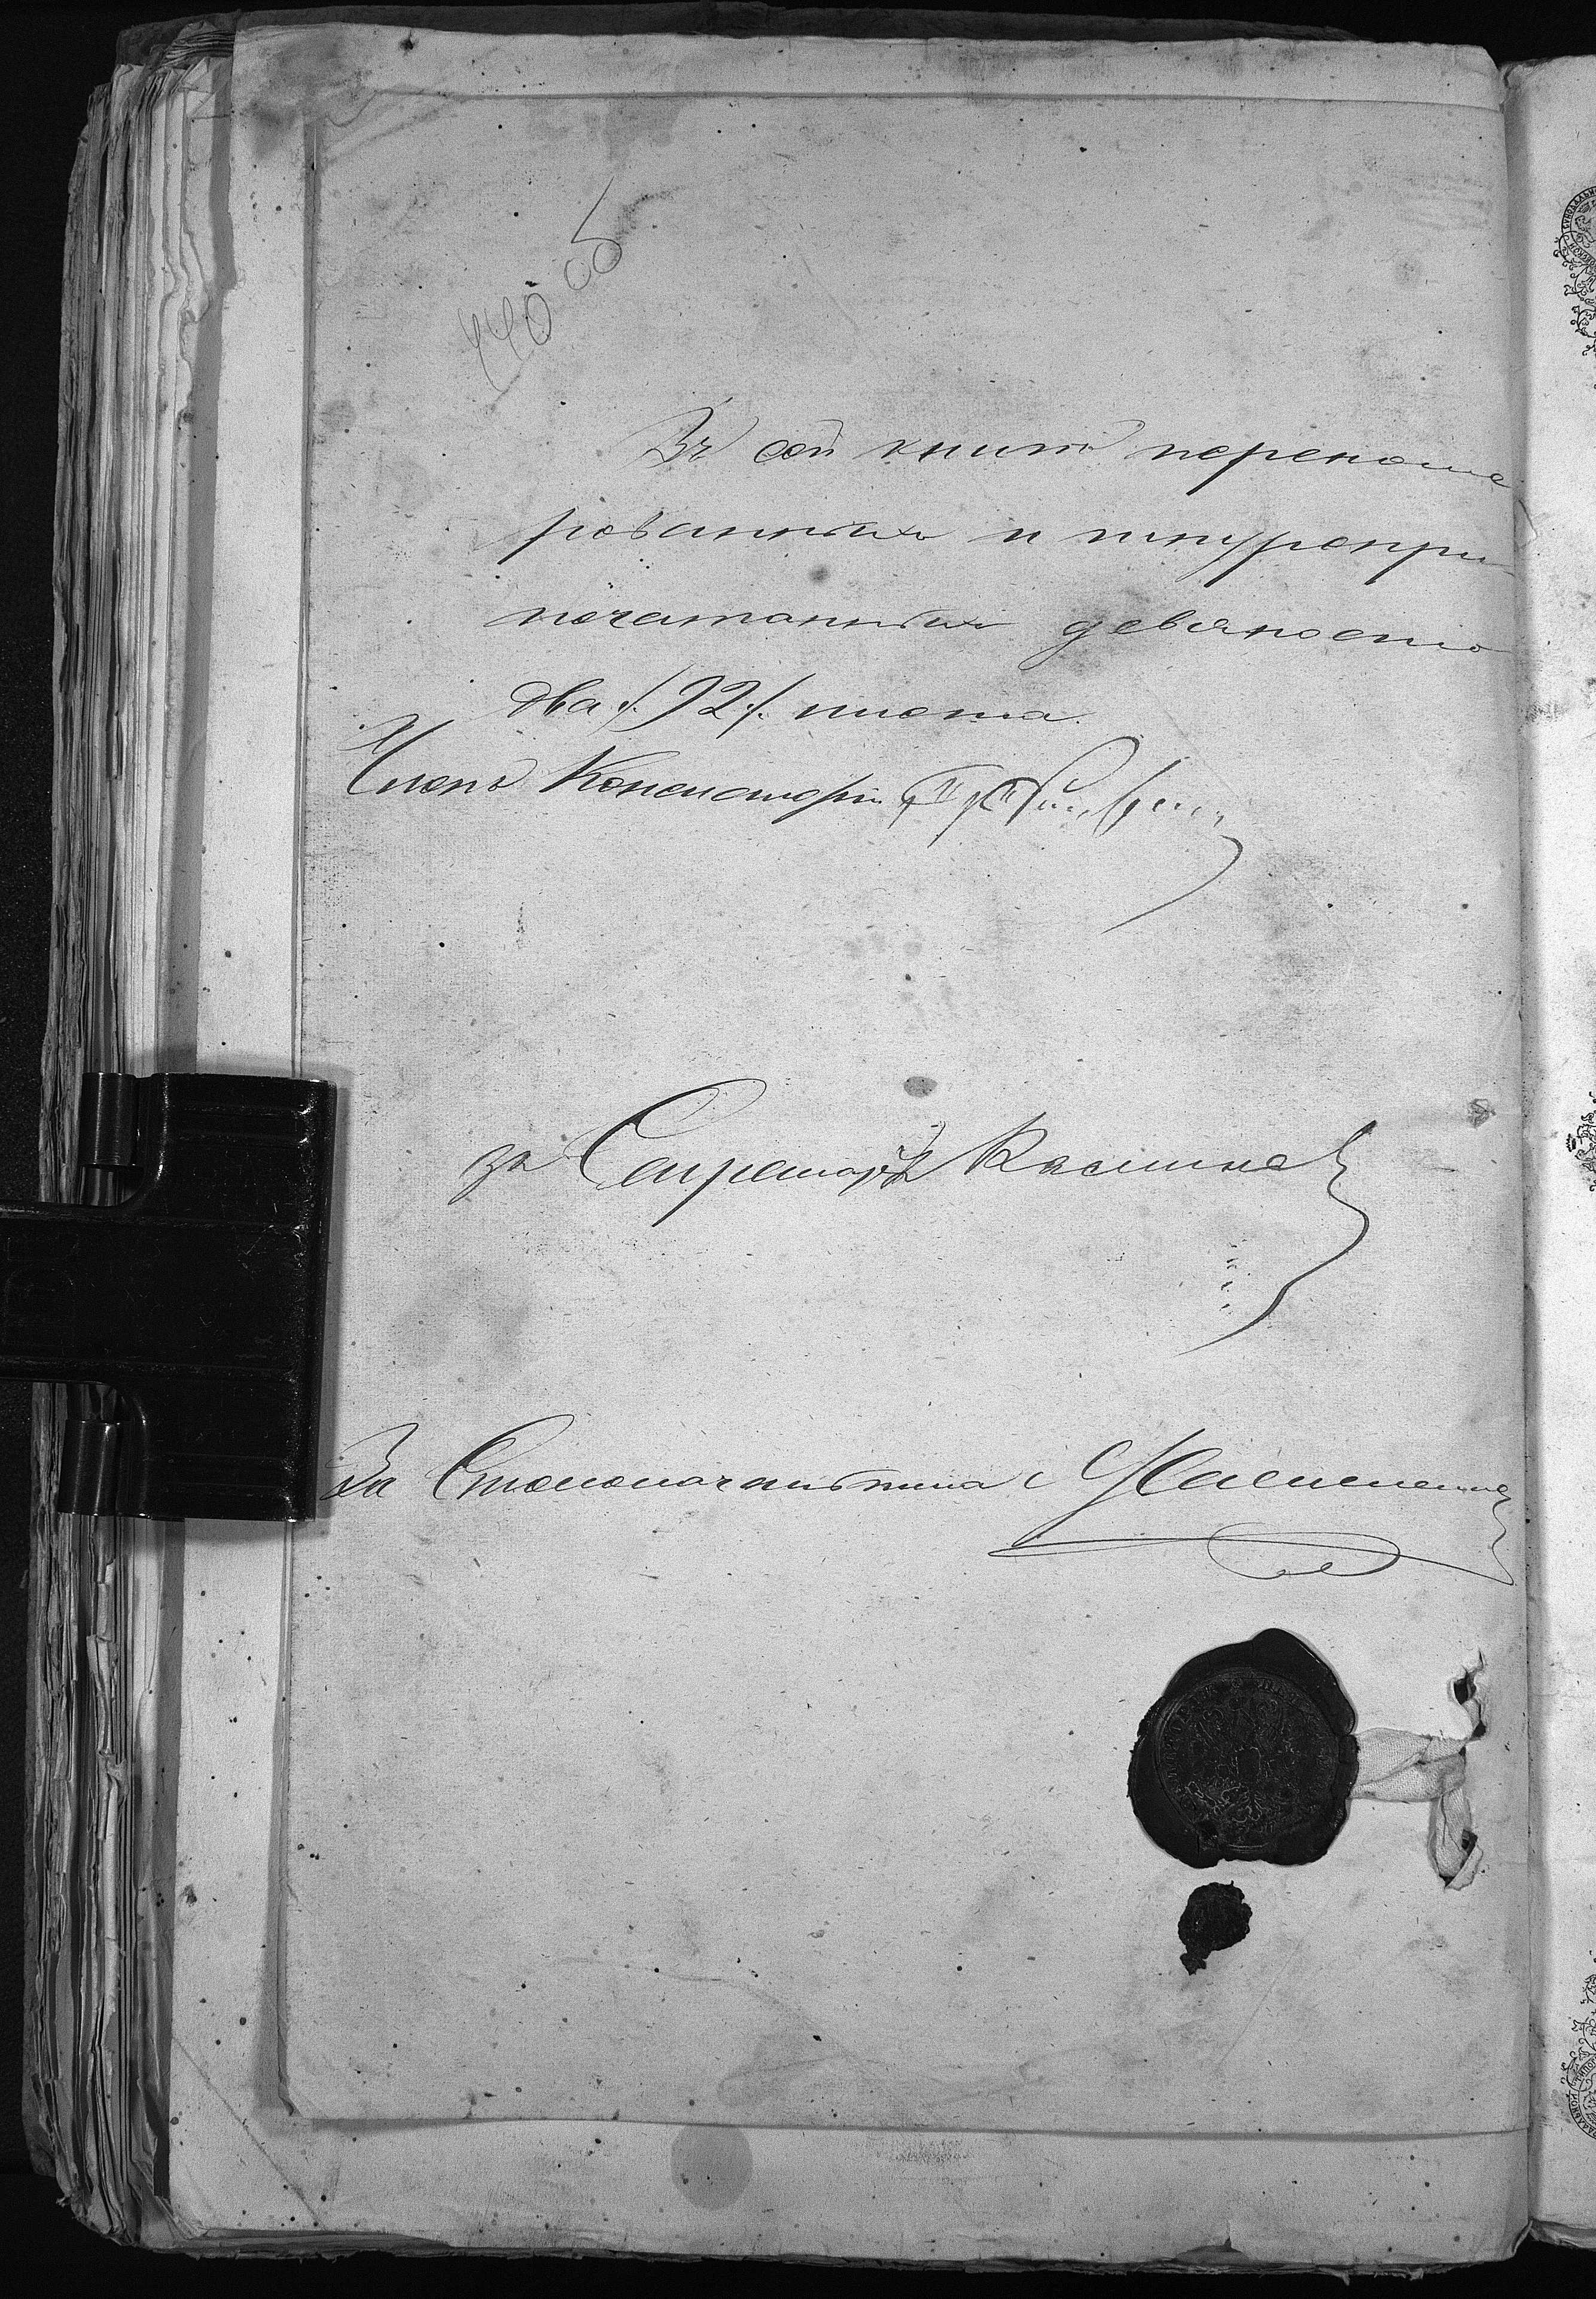 440 об
Въ сей книгѣ перенуме
рованныхъ и шнуропри
печатанныхъ девяносто
два /92/. листа.
Членъ Консисторіи
за Секретаря
За Столоначальника